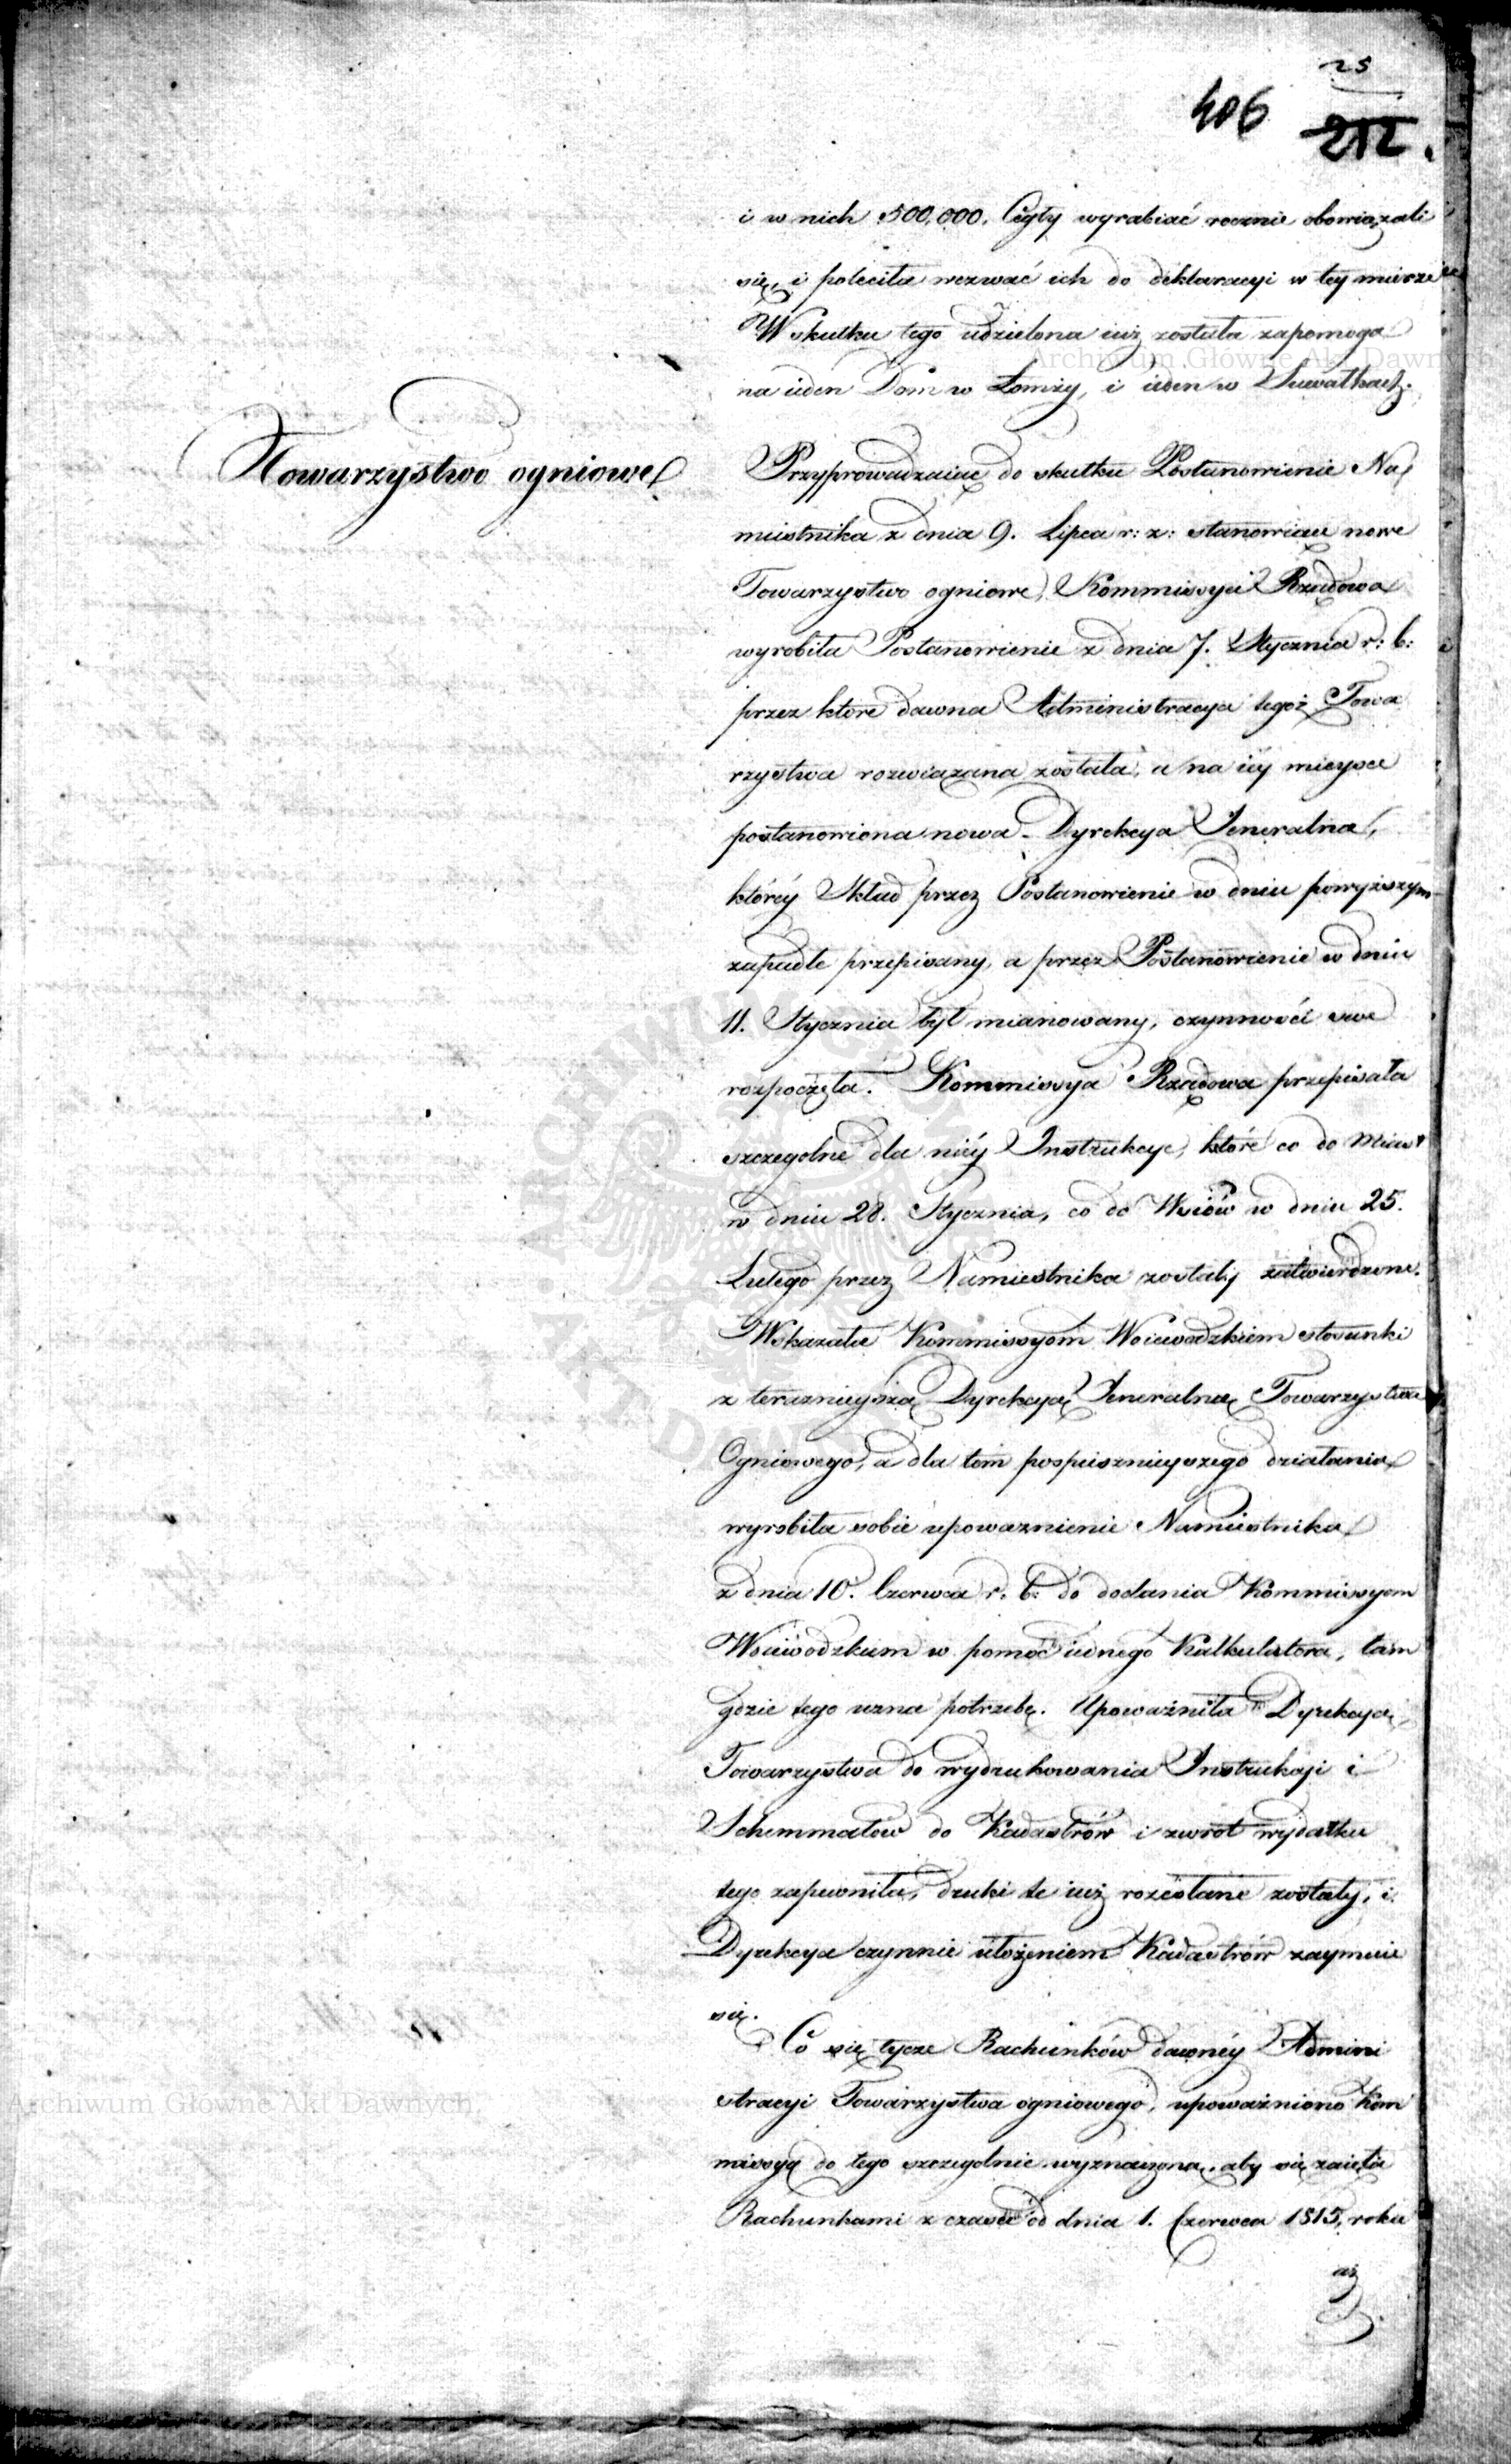 25
406 212.
i w nich 500,000. Cegły wyrabiać rocznie obowiązali
się, i poleciła wezwać ich do deklaracyi w tey mierze
W skutku tego udzielona iuż została zapomoga
na ieden Dom w Łomży, i ieden w Suwałkach.
Towarzystwo ogniowe
Przyprowadzaiąc do skutku Postanowienie Na
miestnika z dnia 9. Lipca r: z: stanowiące nowe
Towarzystwo ogniowe, Kommissya Rządowa
wyrobiła Postanowienie z dnia 7. Stycznia r: b:
przez które dawna Administracya tegoż Towa
rzystwa rozwiązana została, a na iéy mieysce
postanowiona nowa Dyrekcya Jeneralna,
któréy Skład przez Postanowienie w dniu powyższym
zapadłe przepisany, a przez Postanowienie w dniu
11. Stycznia był mianowany, czynności swe
rozpoczęła. Kommissya Rządowa przepisała
szczególne dla niéy Instrukcye, które co do Miast
w dniu 28. Stycznia, co do Wsiów w dniu 25.
Lutego przez Namiestnika zostały zatwierdzone.
Wskazała Kommissyom Woiewodzkiem stosunki
z teraznieyszą Dyrekcyą Jeneralną Towarzystwa
Ogniowego, a dla tem pospiesznieyszego działania
wyrobiła sobie upoważnienie Namiestnika
z dnia 10. Czerwca r. b: do dodania Kommissyom
Woiewodzkim w pomoc iednego Kalkulatora, tam
gdzie tego uzna potrzebę. Upoważniła Dyrekcyą
Towarzystwa do wydrukowania Instrukcyi i
Schemmatów do Kadastrów i zwrot wydatku
tego zapewniła, druki te iuż rozesłane zostały, i
Dyrekcya czynnie ułożeniem Kadastrów zaymuie
się.
Co się tycze Rachunków dawnéy Admini
stracyi Towarzystwa ogniowego, upoważniono Kom
missyą do tego szczególnie wyznaczoną, aby się zaięła
Rachunkami z czasu od dnia 1. Czerwca 1815, roku
aż
Archiwum Główne Akt Dawnych
Archiwum Główne Akt Dawnych
ARCHIWUM GŁÓWNE AKT DAWNYCH